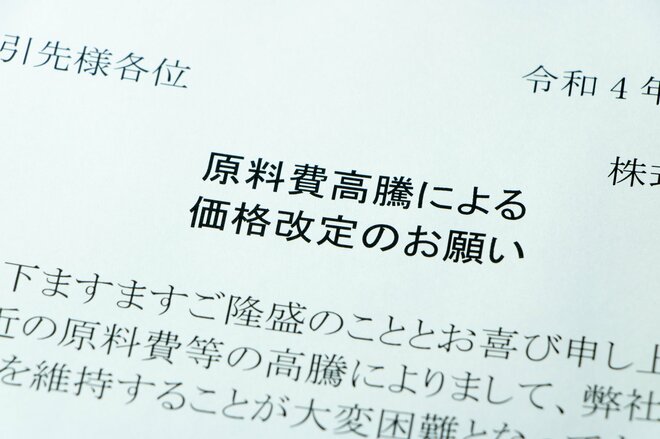 引先様各位
令和4年
株式
原料費高騰による
価格改定のお願い
下ますますご隆盛のこととお喜び申し上
近の原料費等の高騰によりまして、弊社
を維持することが大変困難とな